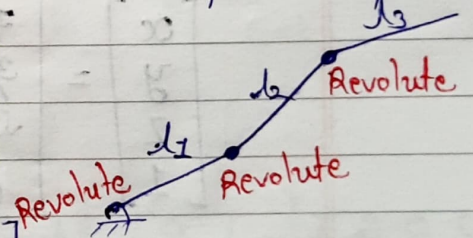 l3
l2
Revolute
l1
Revolute
Revolute